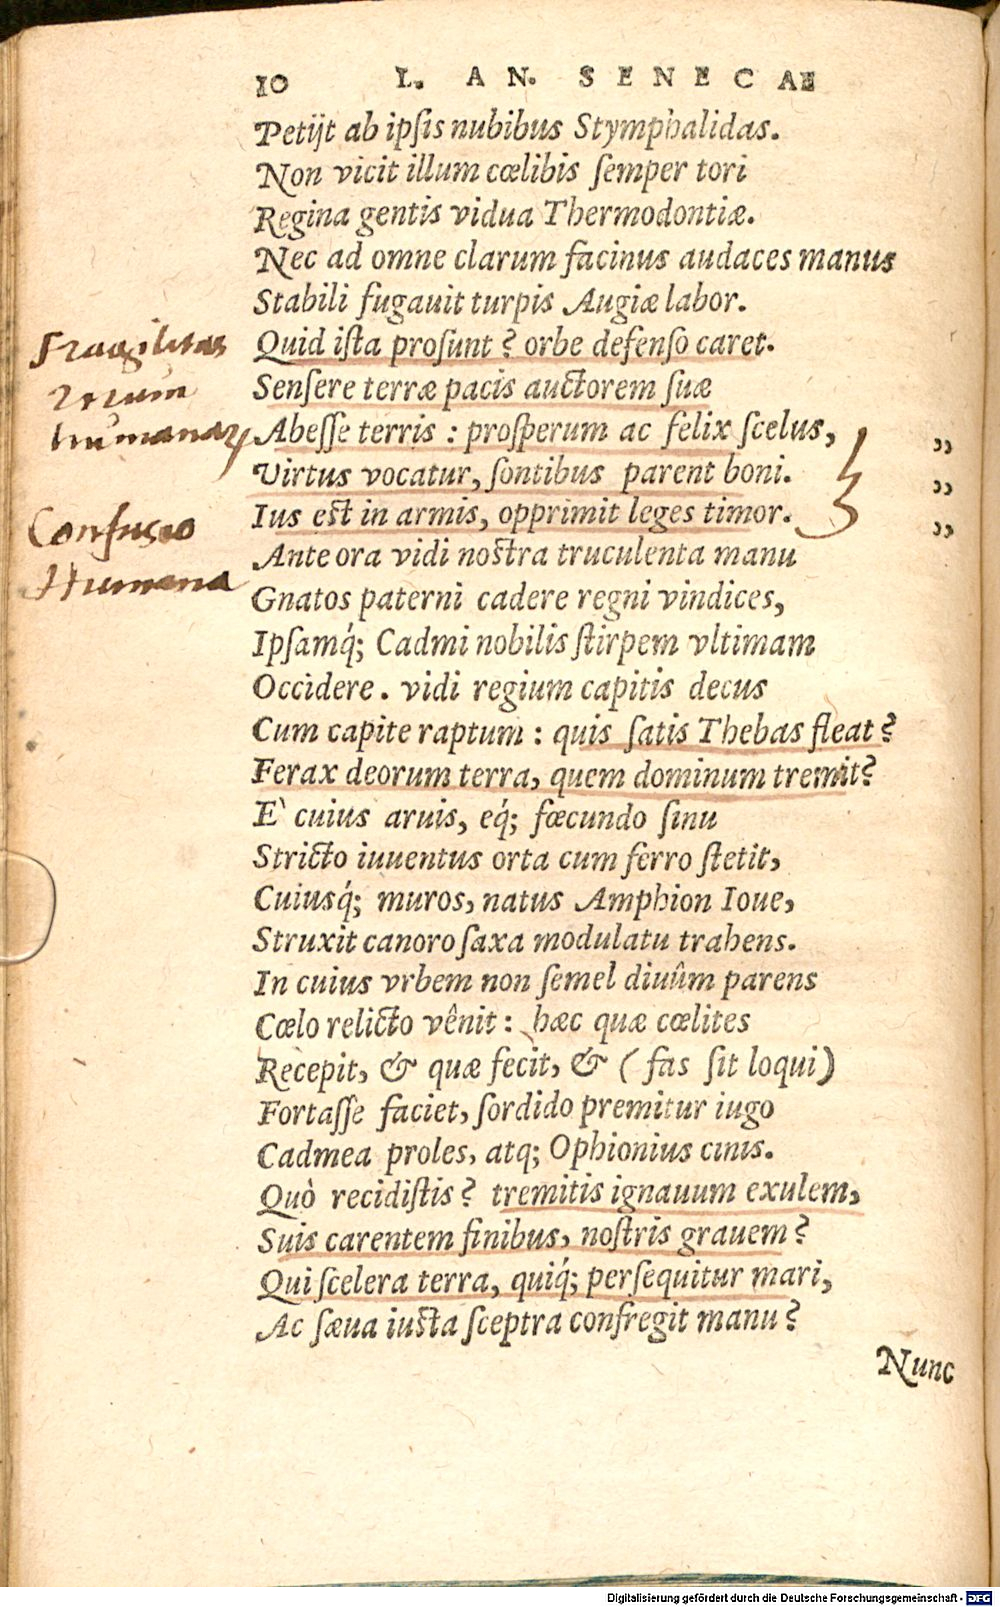 10 L. AN. SENECAE
Petijt ab ipſis nubibus Stymphalidas.
Non vicit illum cœlibis ſemper tori
Regina gentis vidua Thermodontiæ.
Nec ad omne clarum facinus audaces manus
Stabili fugauit turpis Augiæ labor.
Quid iſta proſunt? orbe defenſo caret.
Senſere terræ pacis auctorem ſuæ
Abeſſe terris: proſperum ac felix ſcelus,
Virtus vocatur, ſontibus parent boni.
Ius eſt in armis, opprimit leges timor.
Ante ora vidi noſtra truculenta manu
Gnatos paterni cadere regni vindices,
Ipſamq́; Cadmi nobilis ſtirpem vltimam
Occidere. vidi regium capitis decus
Cum capite raptum: quis ſatis Thebas fleat?
Ferax deorum terra, quem dominum tremit?
E` cuius aruis, eq́; fœcundo ſinu
Stricto iuuentus orta cum ferro ſtetit,
Cuiusq́; muros, natus Amphion Ioue,
Struxit canoro ſaxa modulatu trahens.
In cuius vrbem non ſemel diuûm parens
Cœlo relicto vênit: hæc quæ cœlites
Recepit, & quæ fecit, & (fas ſit loqui)
Fortaſſe faciet, ſordido premitur iugo
Cadmea proles, atq; Ophionius cinis.
Quò recidiſtis? tremitis ignauum exulem,
Suis carentem finibus, noſtris grauem?
Qui ſcelera terra, quiq́; perſequitur mari,
Ac ſæua iuſta ſceptra confregit manu?
Nunc
Fragilitas
rerum
humanarꝝ
Confusio
Humana
”
”
”
Digitalisierung gefördert durch die Deutsche Forschungsgemeinschaft - DFG